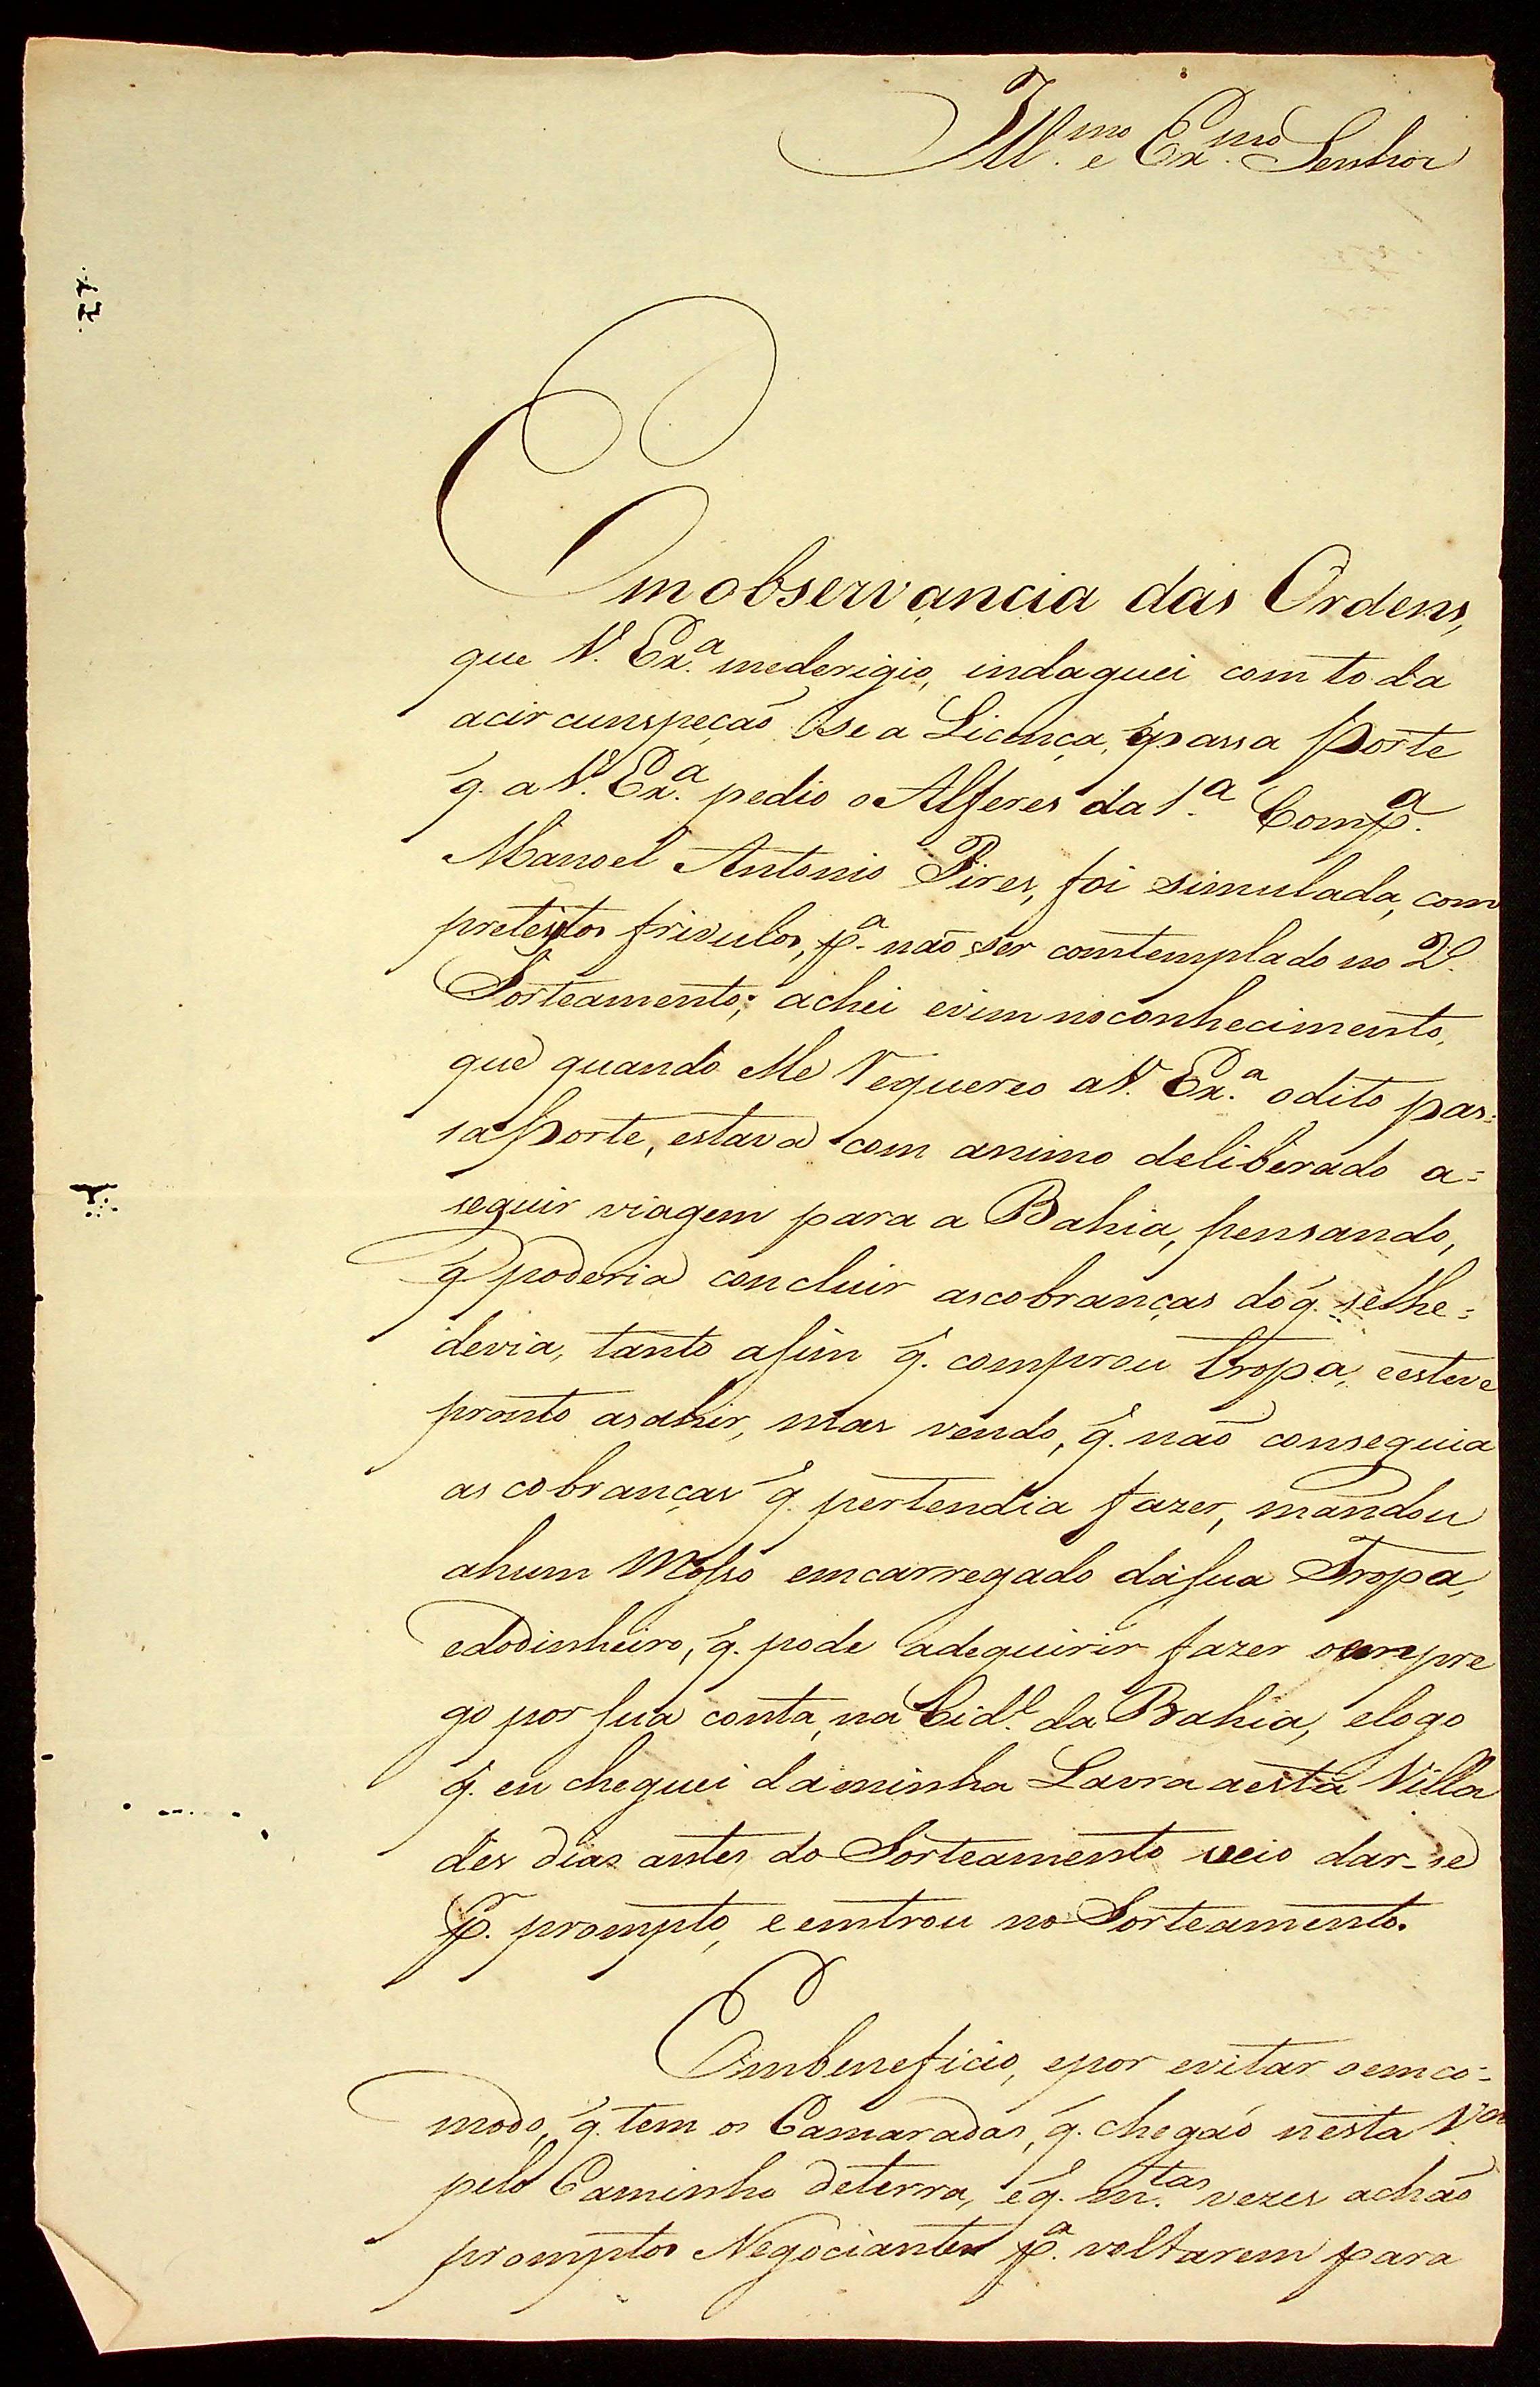 Ill.mo e Ex.mo Senhor
Em observancia das Ordens,
que V. Ex.a mederigio, indaguei com toda
acircunspeçaõ se a Licença, passa porte
q. a V. Ex.a pedio o Alferes da 1.a Comp.a
Manoel Antonio Pires, foi simulada, com
pretextos frivulos, p.a naõ ser comtemplado no 2.º
Sorteamento; achei evim noconhecimento,
que quando Me requereo a V. Ex.a odito pas=
saporte, estava com animo deliberado a=
seguir viagem para a Bahia, pensando,
q poderia concluir ascobranças do q. selhe=
devia, tanto asim q. comprou tropa, eesteve
pronto asahir, mas vendo, q. naõ conseguia
as cobranças q. pertendia fazer, mandou
ahum Mosso emcarregado dasua Tropa,
edodinheiro, q. pode adequirir fazer oempre
go por sua conta, na Cid.e da Bahia, elogo
q. eu cheguei daminha Lavra aesta Villa
des dias antes do Sorteamento veio dar-se
p.r prompto, e emtrou no Sorteamento.
Embeneficio, epor evitar oemco=
modo, q. tem os Camaradas, q. chegaõ nesta V.a
pelo Caminho deterra, eq. m.tas vezes achaõ
promptos Negociantes p.a voltarem para